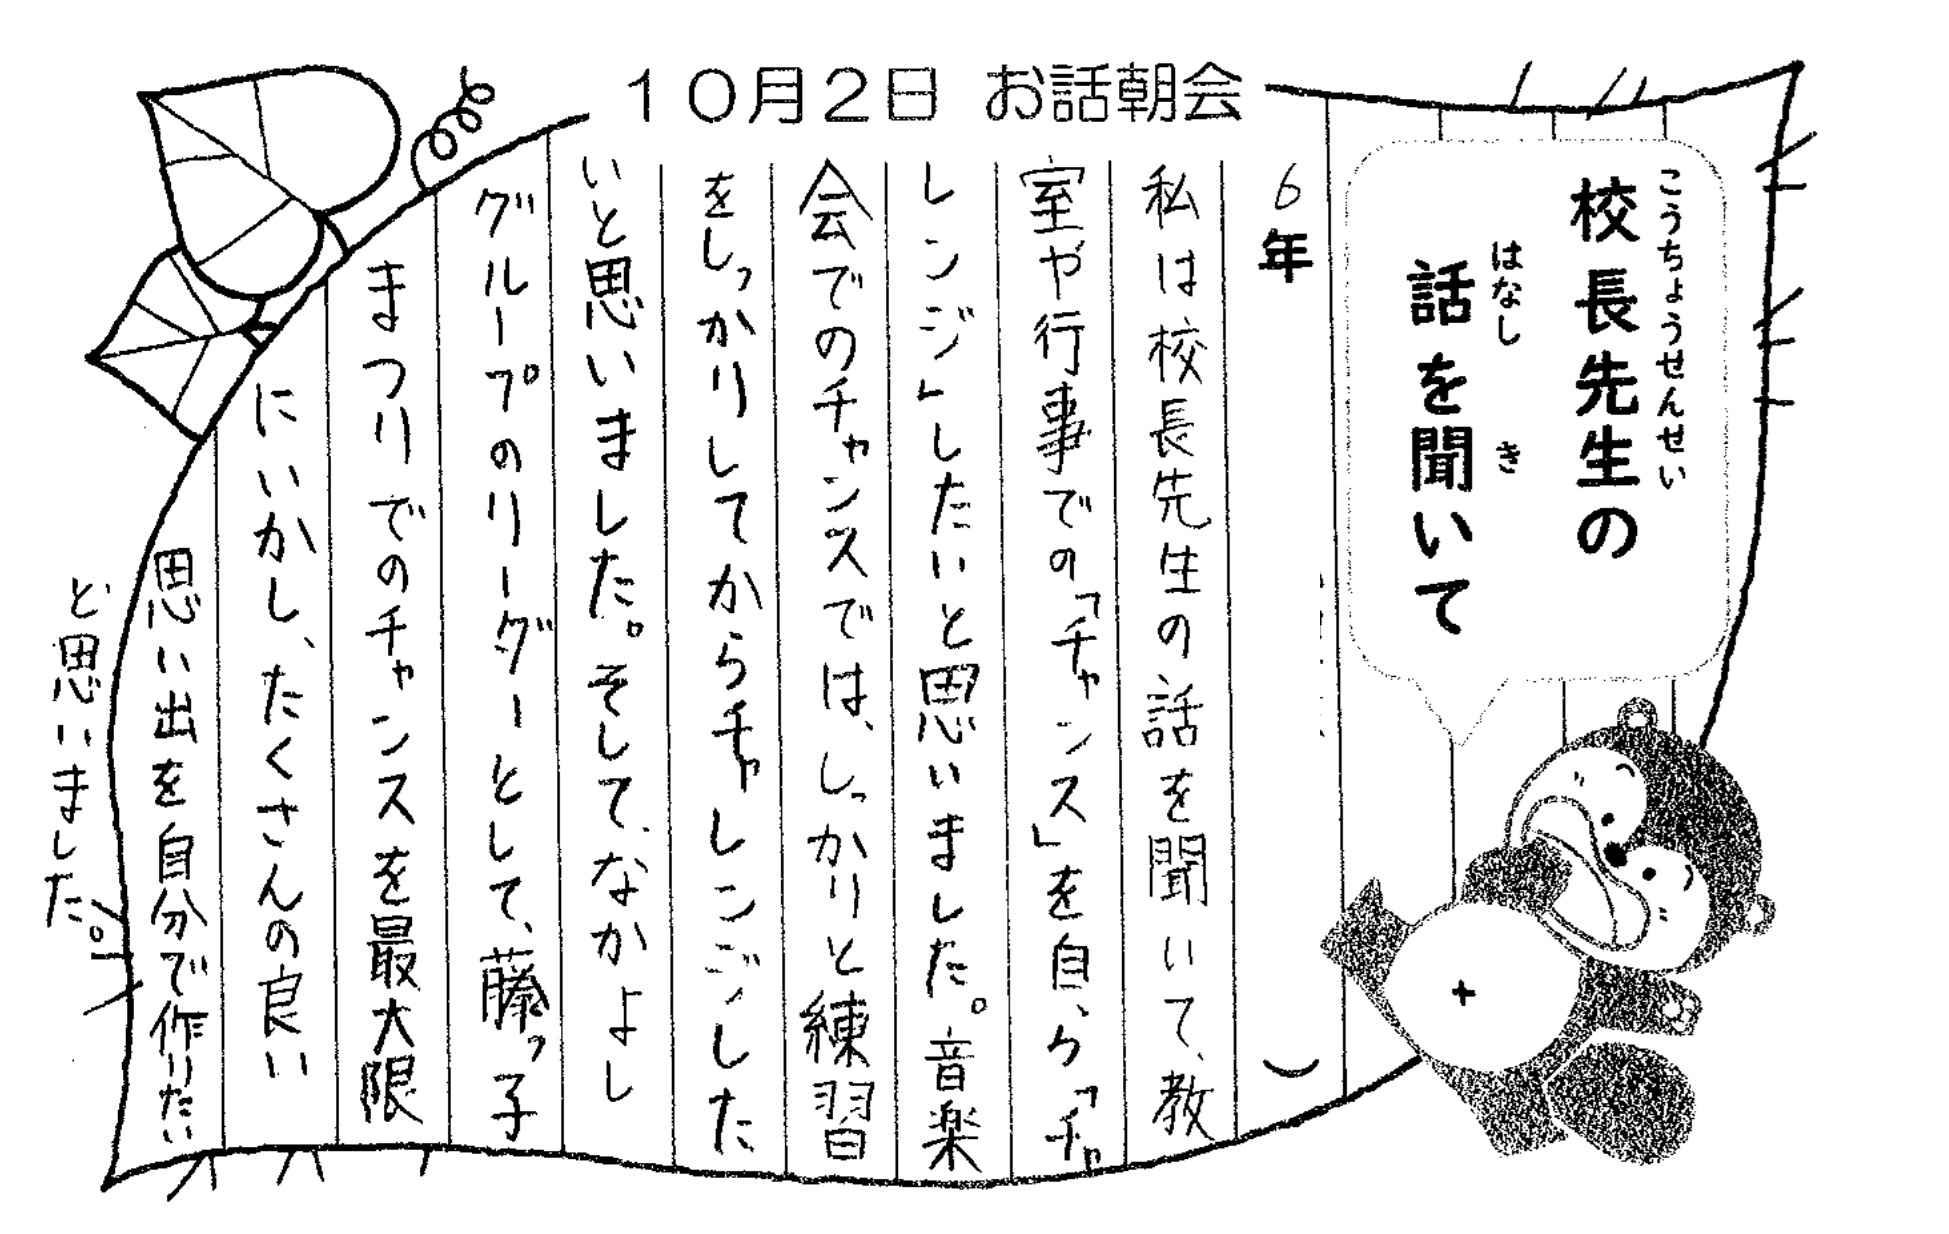 10月2日 お話朝会
こうちょうせんせい
校長先生の
はなし き
話を聞いて
6年
私は校長先生の話を聞いて、教
室や行事での「チャンス」を自らゝ「チャ
レンジ」したいと思いました。音楽
会でのチャンスでは、しっかりと練習
をしっかりしてからチャレンジした
いと思いました。そして、なかよし
グループのリーダーとして、藤っ子
まつりでのチャンスを最大限
にいかし、たくさんの良い
思い出を自分で作りたい
と思いました。